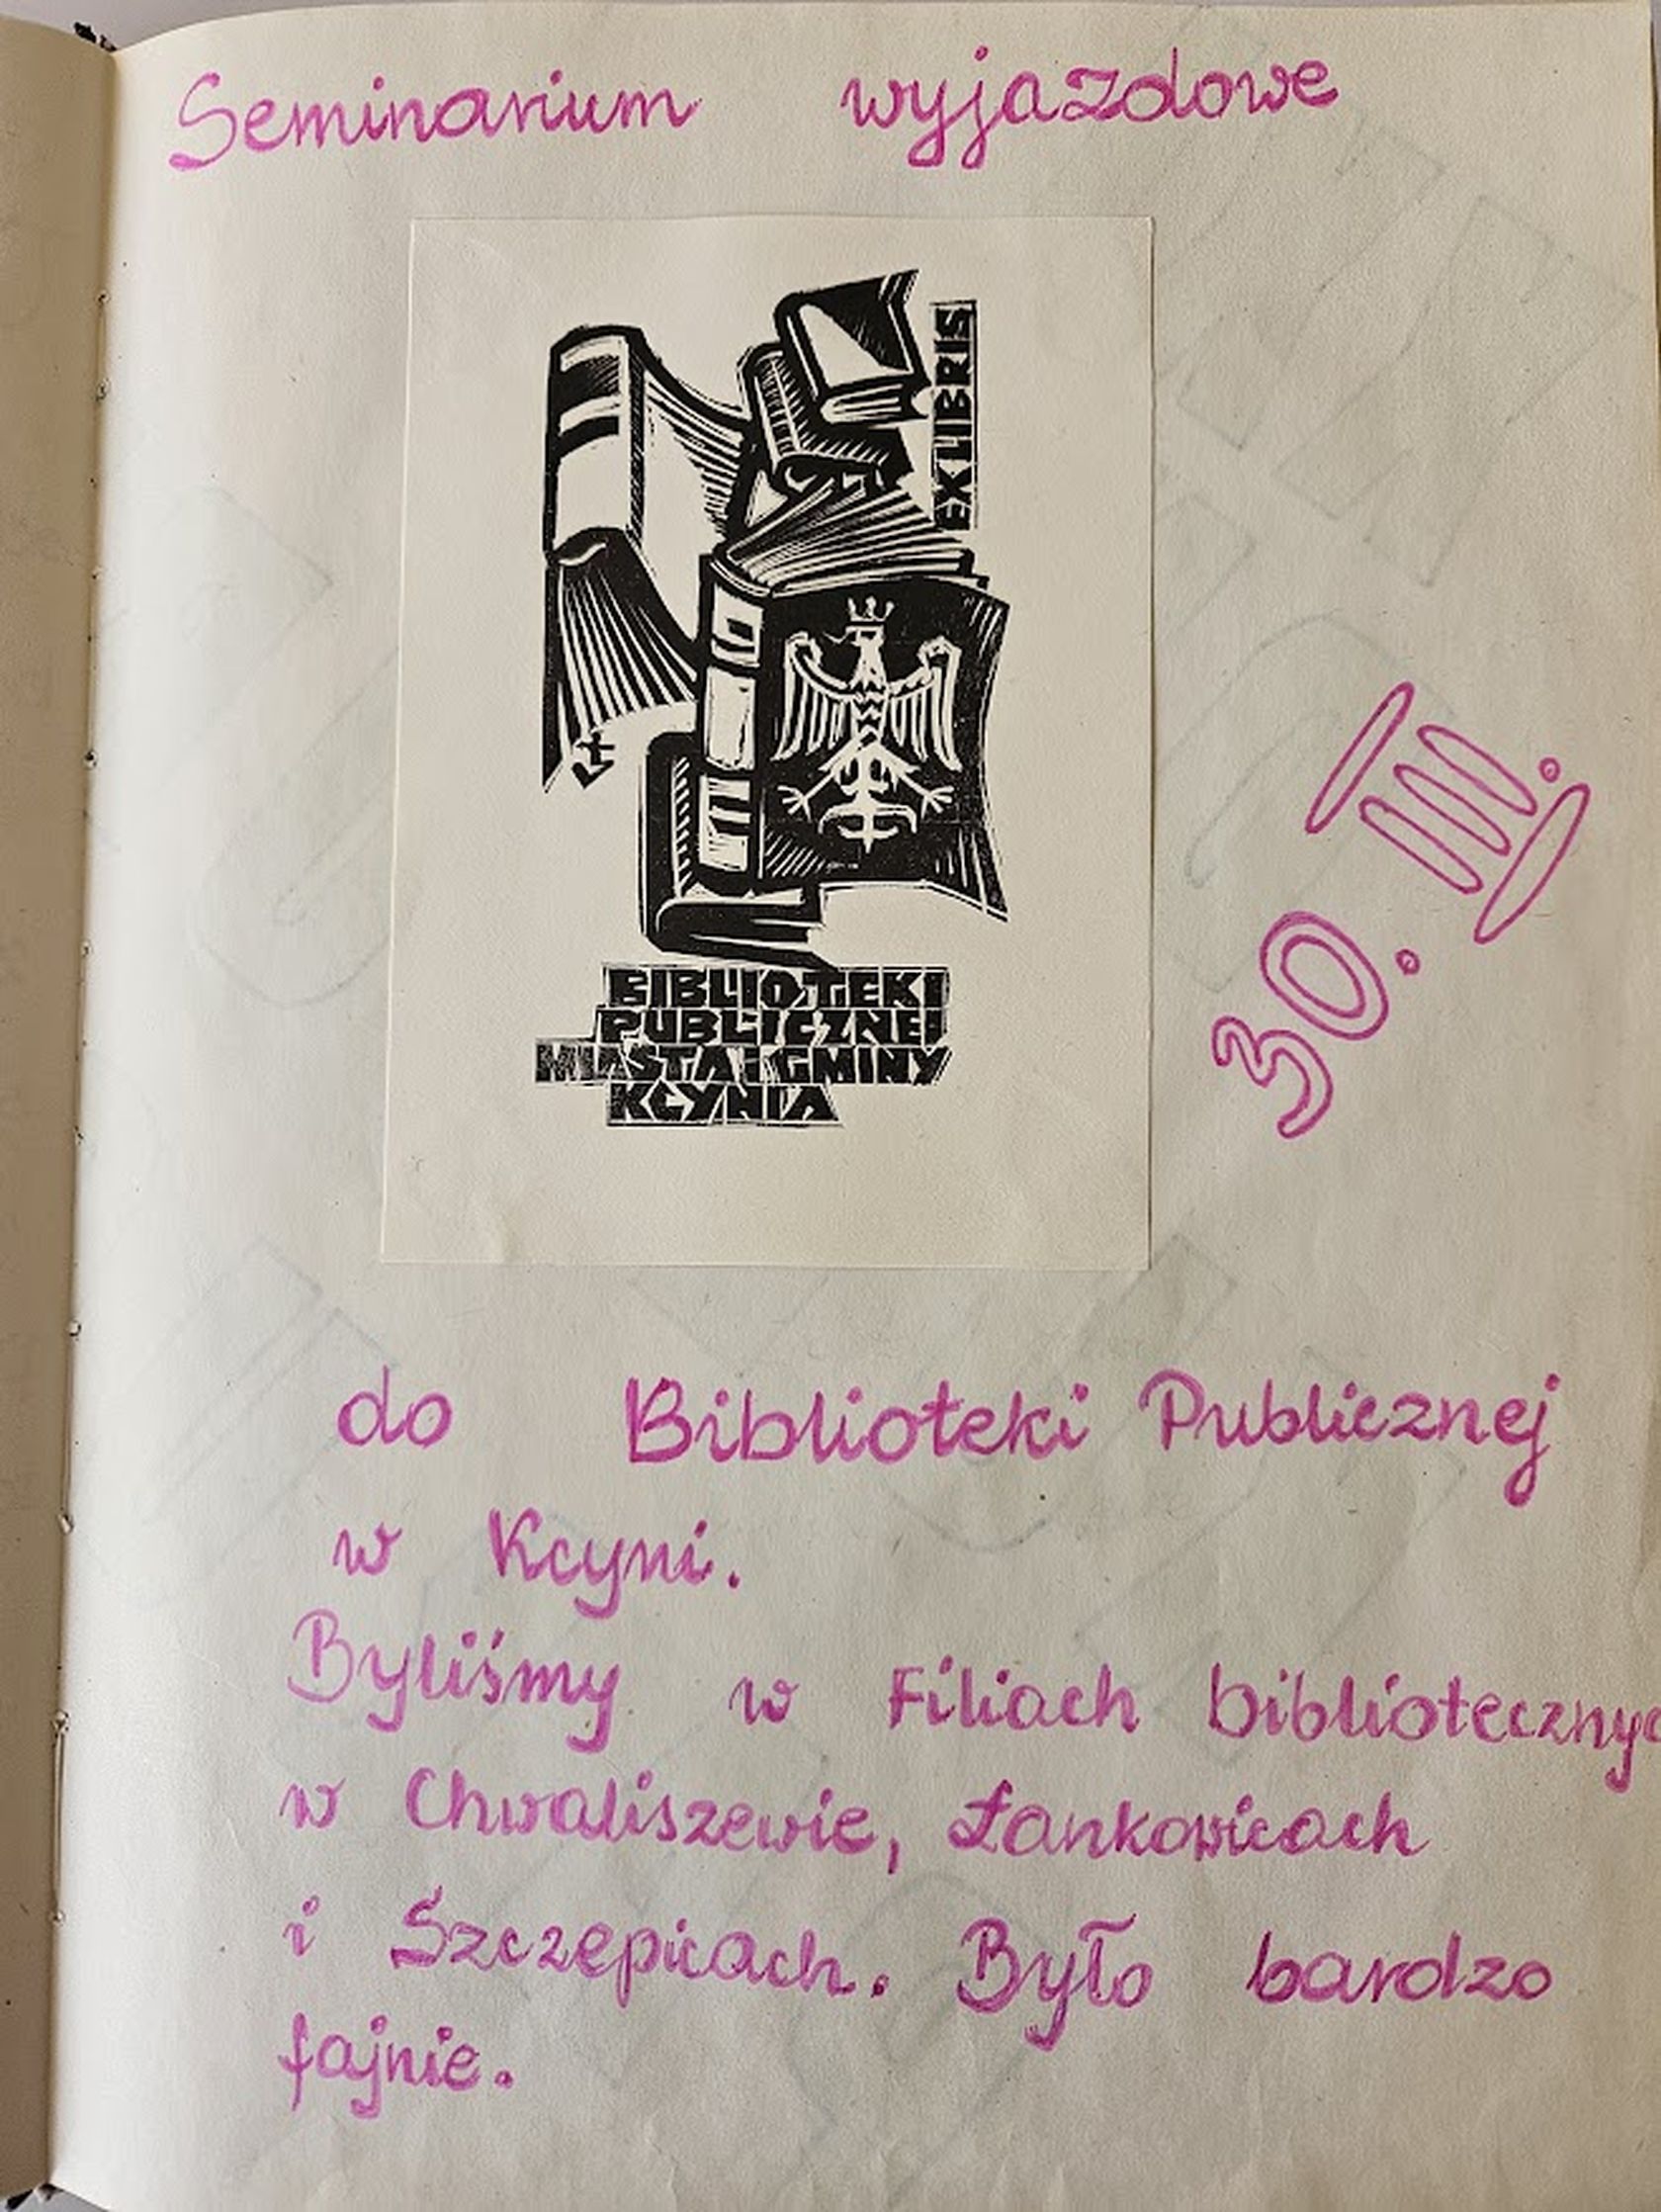 Seminarium wyjazdowe
EXLIBRIS
BIBLIOTEKI
PUBLICZNEJ
MIASTA I GMINY
KCYNIA
30. III.
do Biblioteki Publicznej
w Kcyni.
Byliśmy w Filiach bibliotecznyc
w Chwaliszewie, Łankowicach
i Szczepicach. Było bardzo
fajnie.